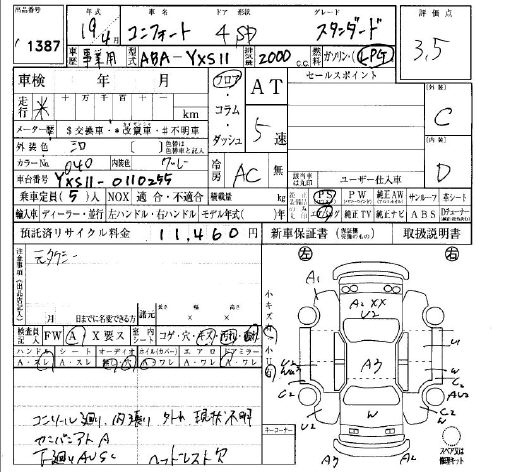 出品番号 年式 車名 ドア 形状 グレード 評価点
1387 19 4 コンフォート 4 SD スタンダード 3.5
車歴 事業用 型式 ABA-YXS11 排気量 2000 c.c. 燃料 ガソリン・(LPG)
車検 年 月 フロア AT セールスポイント 外装
走行 ※ 十万千百十 km コラム C
メーター等 $交換車・*改竄車・#不明車 ダッシュ 5速 内装
外装色 シロ 色替は色替車と記入 D
カラーNo. 040 内装色 グレー 冷房 AC 無
車台番号 YXS11-0110255 ユーザー仕入車
乗車定員(5)人 NOX 適合・不適合 積載量 kg PS PW 純正AW サンルーフ 革シート
輸入車 ディーラー・並行 左ハンドル・右ハンドル モデル年式( )年 純正TV 純正ナビ ABS Dチューナー
預託済リサイクル料金 11,460円 新車保証書 取扱説明書
注意事項(出品店記入) 左 右
元タクシー
A1
A2 XX
U2
月 日までに名変できる方 諸元 長さ 幅 高さ
小キズ
検査員記入 FW A X 要ス 室内シート コゲ・穴・キズ・汚れ
ハンドル シート オーディオ ホイル(カバー) エアロ ドアミラー
A・スレ A・スレ A・ワレ A・ワレ A・ワレ
Aウ
U1
W
C2
U2
W
C2
コンソール廻り 内張り 外れ 現状不明
下廻りAUSC ヘッドレスト欠
コーナー
A3
A2
スペアタイヤは修理キット